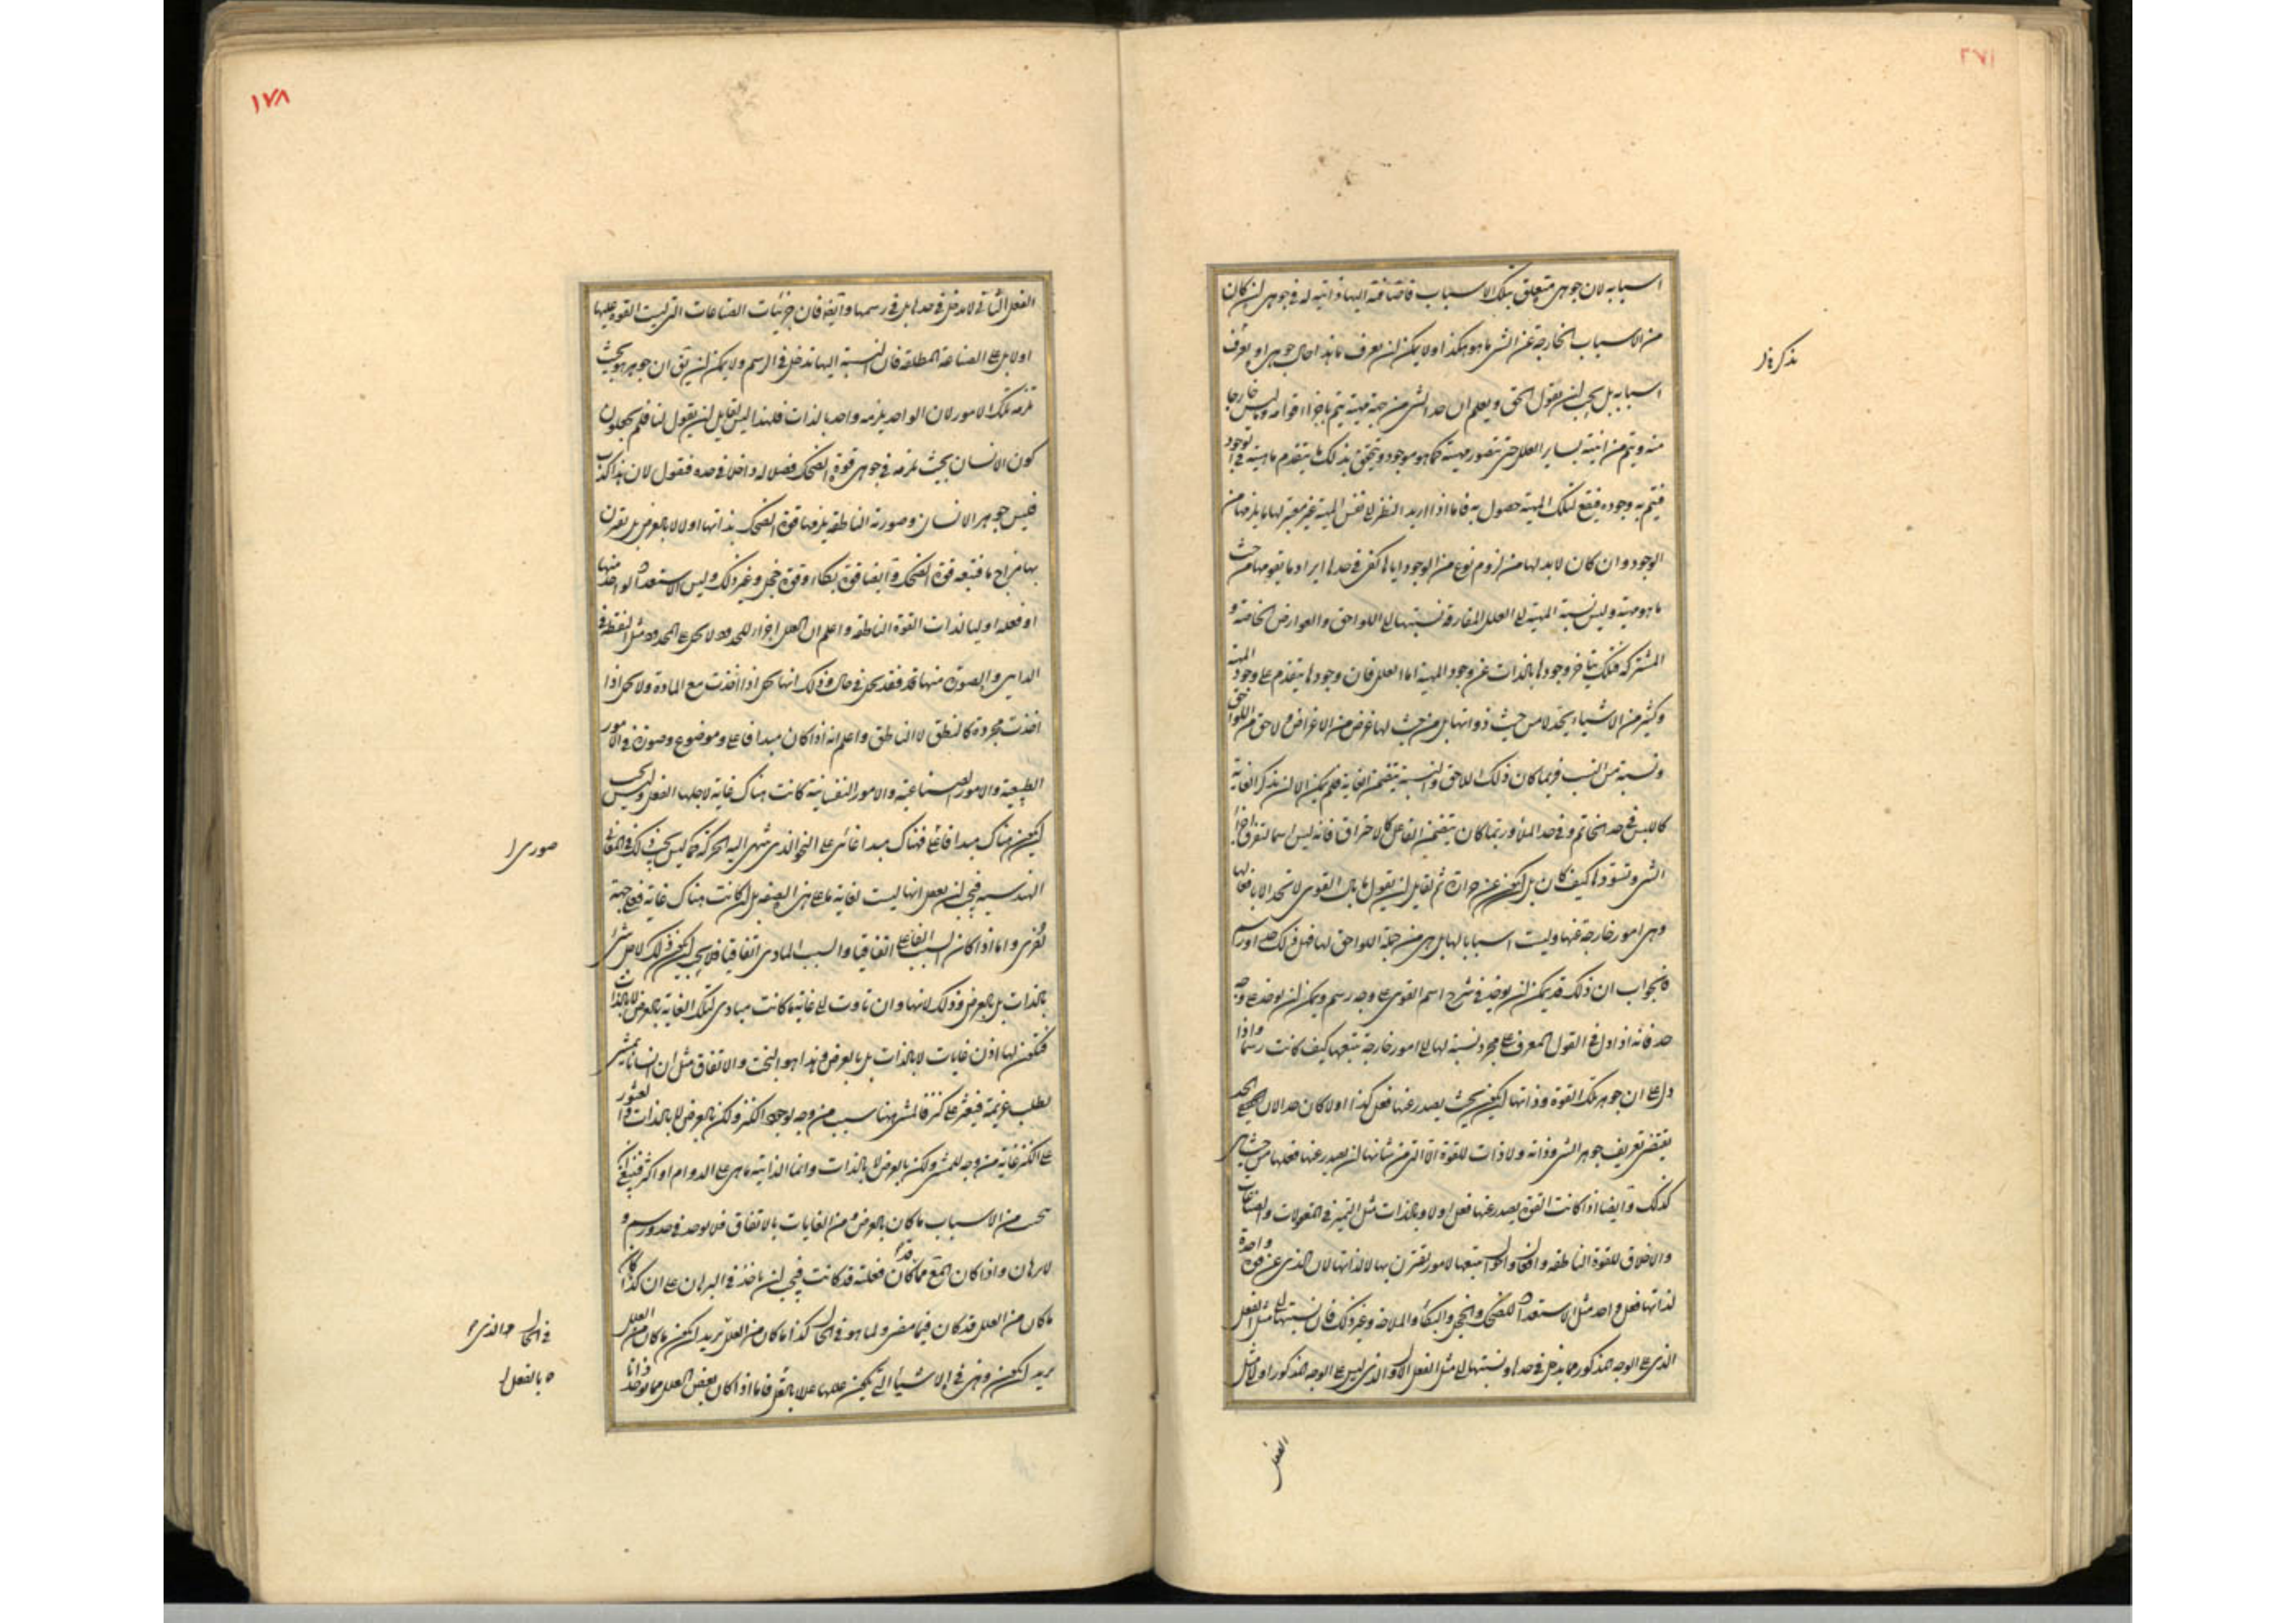 اسبابه لان جوهره متعلق بتلك الاسباب فاضافته اليها ذاتية له في جوهره لن كان
من الاسباب الخارجة عن الشئ ما هو هكذا اولا يمكن لن يعرف ما هذا حال جوهره او يعرف
بذكر فاذ
اسبابه بل يجب لن يقول الحق ويعلم ان حد الشئ من جهة مهيته يتم باجزاء قوامه وليس خارجا
منه ويتم من انيته بساير العلل حتى يتصور مهيته كما هو موجود ويتحقق بذلك ما يتقدم ماهيته في الوجود
فيتم به وجوده فيقع لتلك المهية حصول به فاما اذا اريد النظر الى نفس المهية غير معتبر لها ما يلزمها من
الوجود وان كان لابد لها من لزوم نوع من الوجود اياها كفى في حدها ايراد ما يقومها من حيث
ما هو مهية وليس نسبة المهية الى العلل المفارقة نسبتها الى اللواحق والعوارض الخاصة و
المشتركة فتلك يتاخر وجودها بالذات عن وجود المهية اما العلل فان وجودها يتقدم على وجود المهية
وكثير من الاشياء يحد لا من حيث ذواتها بل من حيث لها عرض من الاعراض ولاحق من اللواحق
ونسبة من النسب فربما كان ذلك اللاحق والنسبة يتضمن الغاية فلم يكن الا لن يذكر الغاية
كاللبس في حد الخاتم وفي حد الملا وربما كان يتضمن الفاعل كالاحتراق فانه ليس اسما لتفرق اجزاء
الشئ وتسودها كيف كان بل لن يكون عن حرارة ثم لقايل لن يقول ما بال القوى لا تحد الا بافعالها
وهي امور خارجة عنها وليست اسبابا لها بل هي من جملة اللواحق لها فهل ذلك حد او رسم
فالجواب ان ذلك قد يمكن لن يوخذ في شرح اسم القوى على وجه رسم ويمكن لن يوخذ على وجه
حد فانه اذا دل في القول المعرف على مجرد نسبة لها الى امور خارجة تتبعها كيف كانت رسما واذا
دل على ان جوهر تلك القوة وذاتها لن يكون بحيث يصدر عنها فعل كذا اولا كان حدا لان الحد
يقتضي تعريف جوهر الشئ وذاته ولا ذات للقوة الا التي من شانها لن يصدر عنها فعلها من حيث هي
كذلك وايضا اذا كانت القوة يصدر عنها فعل اولا وبالذات مثل التميز في المعقولات والصناعات
والاخلاق للقوة الناطقة وافعال واحوال تتبعها لامور تقترن بها لا لذاتها لان الذي عن قوة واحدة
لذاتها فعل واحد مثل الاستعداد للضحك والخجل والبكاء والملاحة وغير ذلك فان نسبتها الى مثل الفعل
الذي على الوجه المذكور مما يدخل في حدها ونسبتها الى مثل الفعل الاول والذي ليس على الوجه المذكور اولا مثل
الفعل
١٧٨
الفعل الثاني لا يدخل في حدها بل في رسمها وايضا فان جزئيات الصناعات التي ليست القوة عليها
اولا بل على الصناعة المطلقة فان النسبة اليها تدخل في الرسم ولا يمكن لن يق ان جوهرها هو بحيث
تلزمه تلك الامور لان الواحد يلزمه واحد بالذات فلهذا ليس لقايل لن يقول لنا فلم تجعلون
كون الانسان بحيث تلزمه في جوهره قوة الضحك فصلا له داخلا في حده فنقول لان هذا كذب
فليس جوهر الانسان وصورته الناطقة يلزمها قوة الضحك بذاتها اولا لا بالعرض بل يقترن
بها مزاج ما فتتبعه قوة الضحك وايضا قوة بكاء وقوة خجل وغير ذلك وليس الاستعداد الواحد منها
او فعله اوليا لذات القوة الناطقة واعلم ان العلل اجزاء للحدود لا تحمل على المحدود مثل النقطة في
الدايرة والصورة منها قد فقد تحمل في حال وذلك انها تحمل اذا اخذت مع المادة ولا تحمل اذا
اخذت مجردة كالنطق لا الناطق واعلم انه اذا كان مبدا فاعلي وموضوع وصورة في الامور
الطبيعية والامور الصناعية والامور النفسانية كانت هناك غاية لاجلها الفعل وليس يجب
لن يكون هناك مبدا فاعلي فهناك مبدا غائي على النحو الذي تنتهي اليه الحركة كما ليس يجب ذلك في المقادير
صوري ا
الهندسية فيجب لن يعقل انها ليست لغاية ما على هذه الصفة بل لن كانت هناك غاية فعلى جهة
اخرى واما اذا كان السبب الفاعل اتفاقيا والسبب المادي اتفاقيا فلا يجب لن يكون ذلك لاجل شئ
بالذات بل بالعرض وذلك لانها وان تادت الى غاية ما كانت مبادي لتلك الغاية بالعرض لا بالذات
فتكون لها اذن غايات لا بالذات بل بالعرض وهذا هو البخت والاتفاق مثل ان انسانا يمشي
لطلب غريمه فيعثر على كنز فالمشي هنا سبب من وجه لوجود الكنز ولكن بالعرض لا بالذات والعثور
على الكنز غاية من وجه للمشي ولكن بالعرض لا بالذات وانما الذاتية ما هي على الدوام او اكثر فينبغي ان
تجتنب من الاسباب ما كان بالعرض ومن الغايات بالاتفاق فلا يوخذ في حد ورسم و
لا برهان واذا كان المع مما كان قد فعلته قد كانت فيجب لن ياخذ في البرهان على ان كذا كان
ما كان من العلل قد كان فيما مضى ولما هو في الحال كذا ما كان من العلل يريد لن يكون ما كان من العلل
في الحال والذي
يريد لن يكون وهذه في الاشياء التي تكون عللها عللا بالفعل فاما اذا كان بعض العلل مما يوجد ذاتا
ه بالفعل